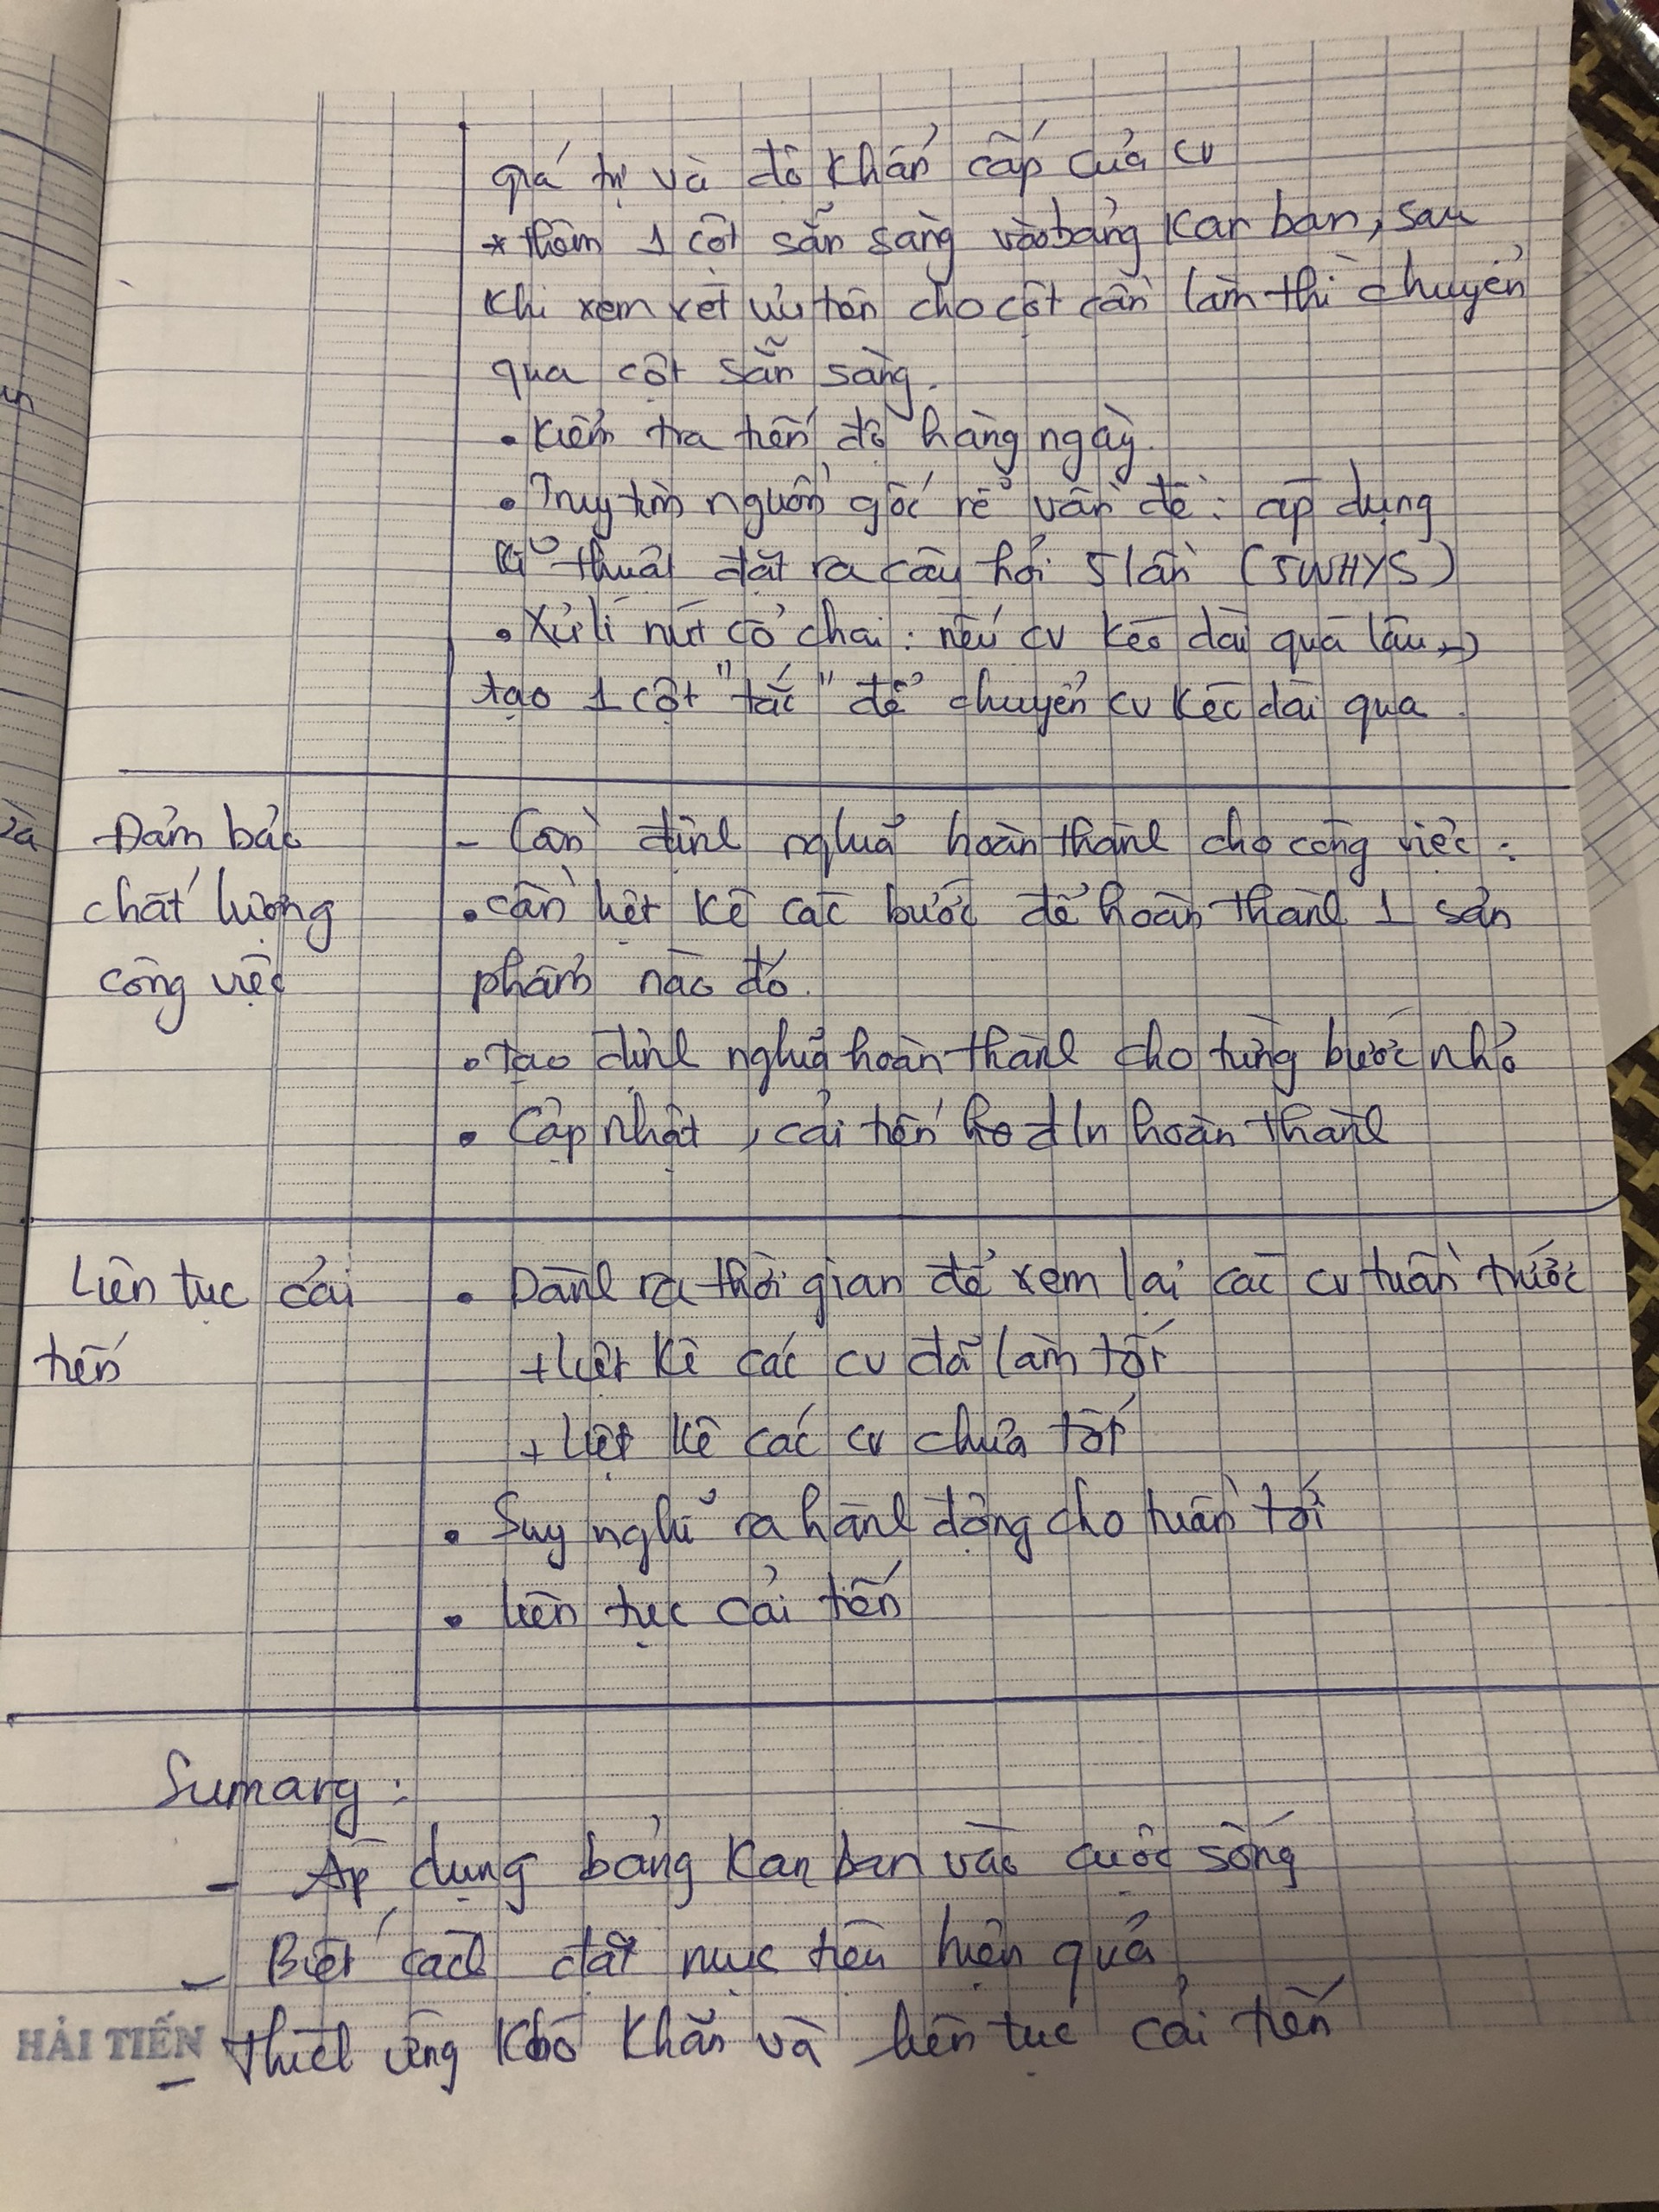 giá trị và độ khẩn cấp của cv
* thêm 1 cột sẵn sàng vào bảng Kan ban, sau
khi xem xét ưu tiên cho cột cần làm thì chuyển
qua cột sẵn sàng.
• Kiểm tra tiến độ hàng ngày.
• Truy tìm nguồn gốc rễ vấn đề: áp dụng
kĩ thuật đặt ra câu hỏi 5 lần (5WHYS)
• Xử lí nút cổ chai: nếu cv kéo dài quá lâu →
tạo 1 cột "tắc" để chuyển cv kéo dài qua.
Đảm bảo
chất lượng
công việc
- Cần định nghĩa hoàn thành cho công việc:
• cần liệt kê các bước để hoàn thành 1 sản
phẩm nào đó.
• Tạo định nghĩa hoàn thành cho từng bước nhỏ
• Cập nhật, cải tiến đ/n hoàn thành
Liên tục cải
tiến
• Dành ra thời gian để xem lại các cv tuần trước
+ Liệt kê các cv đã làm tốt
+ Liệt kê các cv chưa tốt
• Suy nghĩ ra hành động cho tuần tới
• liên tục cải tiến
Sumary:
- Áp dụng bảng Kan ban vào cuộc sống
- Biết cách đặt mục tiêu hiệu quả
- Thích ứng khó khăn và liên tục cải tiến
HẢI TIẾN